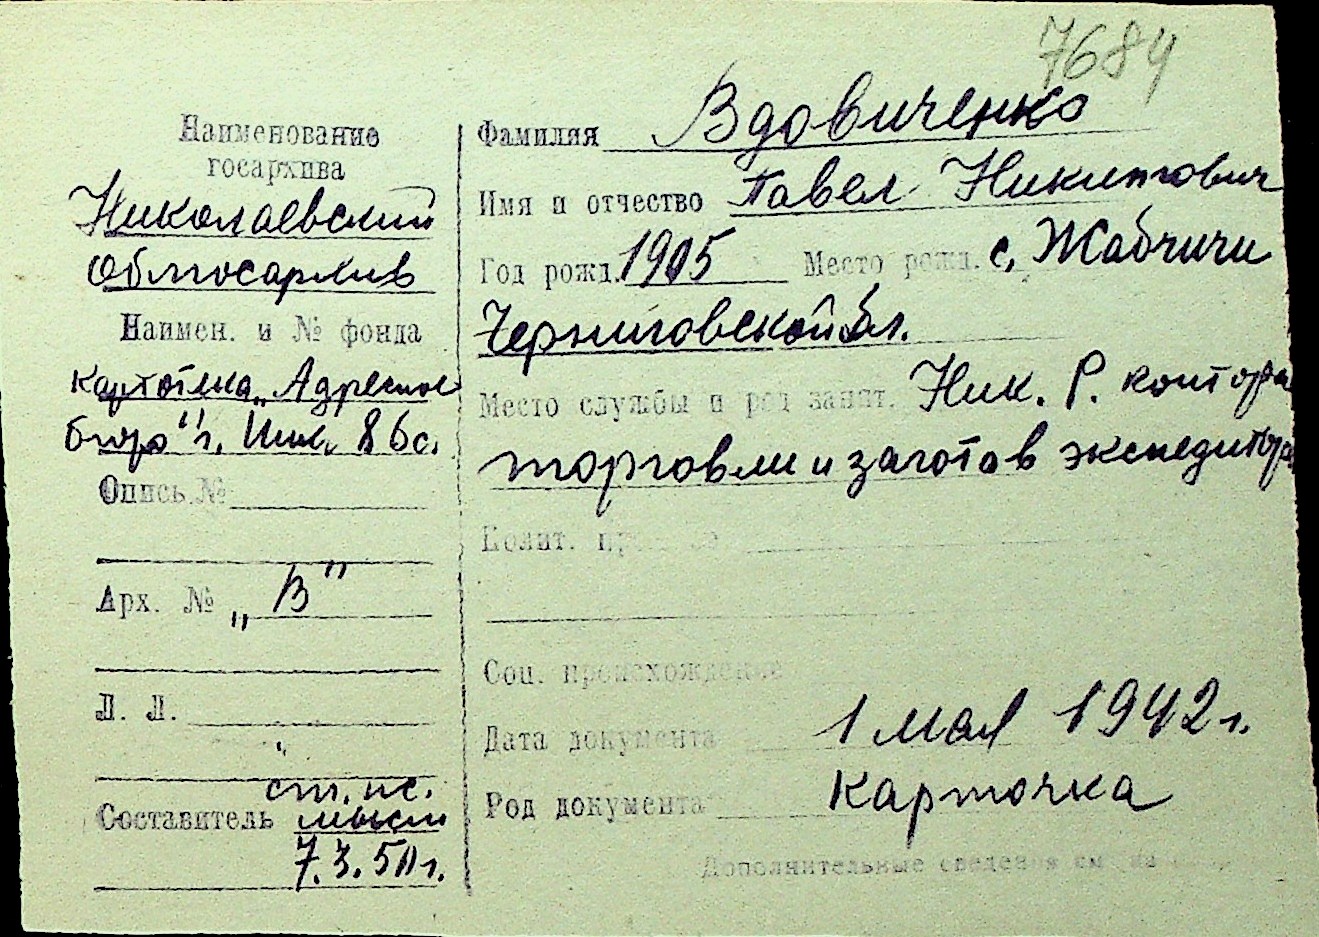 7684
Наименование
госархива
Николаевский
облгосархив
Наимен. и № фонда
Картотека „Адресное
бюро" г. Ник. 86с.
Опись №
Арх. № „В"
Л. Л.
Составитель ст. ис.
7.3.50 г.
Фамилия Вдовиченко
Имя и отчество Павел Никитович
Год рожд. 1905 Место рожд. с. Жабчичи
Черниговской обл.
Место службы и род занят. Ник. Р. контора
торговли и заготов экспедитора
Полит.
Соц. происхождение
Дата документа 1 мая 1942 г.
Род документа Карточка
Дополнительные сведения см. на